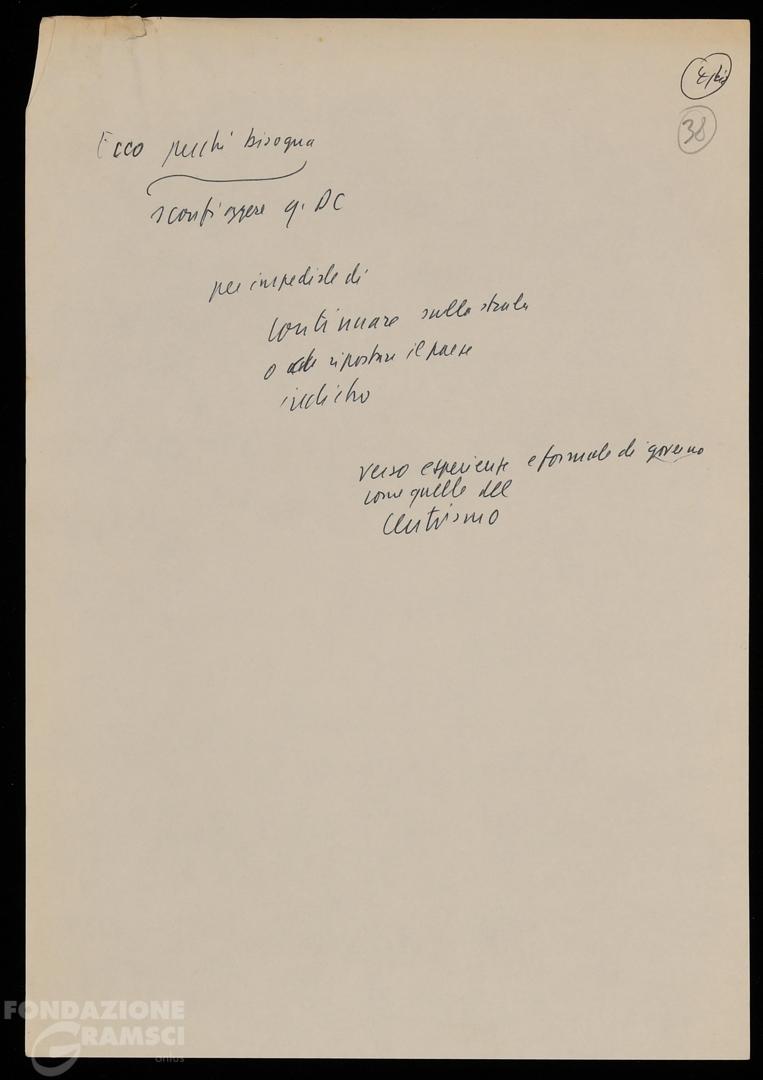 38
Ecco perché bisogna
sconfiggere q. DC
per impedirle di
continuare sulla strada
o di riportare il paese
indietro
verso esperienze e formule di governo
come quelle del
centrismo
FONDAZIONE
GRAMSCI
onlus